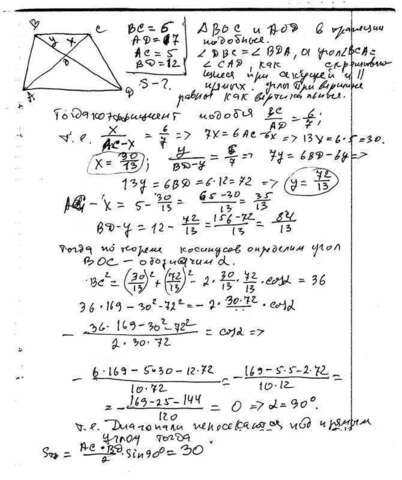 B C
BC = 6
AD = 7
AC = 5
BD = 12
S - ?
y x
O
A D
△BOC и AOD в трапеции
подобные.
∠DBC = ∠BDA, а угол ∠BCA =
∠CAD, как скрестив
шиеся при секущей и ||
прямых. углы при вершине
равны как вертикальные.
Тогда коэффициент подобия BC/AD = 6/7;
т.е. x/(AC-x) = 6/7 => 7x = 6AC - 6x => 13x = 6·5 = 30.
x = 30/13; y/(BD-y) = 6/7 => 7y = 6BD - 6y =>
13y = 6BD = 6·12 = 72 => y = 72/13
AC - x = 5 - 30/13 = (65-30)/13 = 35/13
BD - y = 12 - 72/13 = (156-72)/13 = 84/13
Тогда по теореме косинусов определим угол
BOC - обозначим α.
BC² = (30/13)² + (72/13)² - 2·30/13·72/13·cosα = 36
36·169 - 30² - 72² = -2·30·72·cosα
- (36·169 - 30² - 72²)/(2·30·72) = cosα =>
- (6·169 - 5·30 - 12·72)/(10·72) = - (169 - 5·5 - 2·72)/(10·12) =
= - (169 - 25 - 144)/120 = 0 => α = 90°.
т.е. Диагонали пересекаются под прямым
углом тогда
S = (AC·BD)/2 sin90° = 30